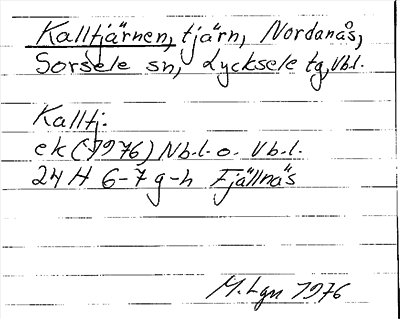 Kalltjärnen, tjärn, Nordanås,
Sorsele sn, Lycksele tg, Vb.l.
Kalltj.
ek (1976) Nb.l. o. Vb.l.
24 H 6-7 g-h Fjällnäs
M. Lgn 1976